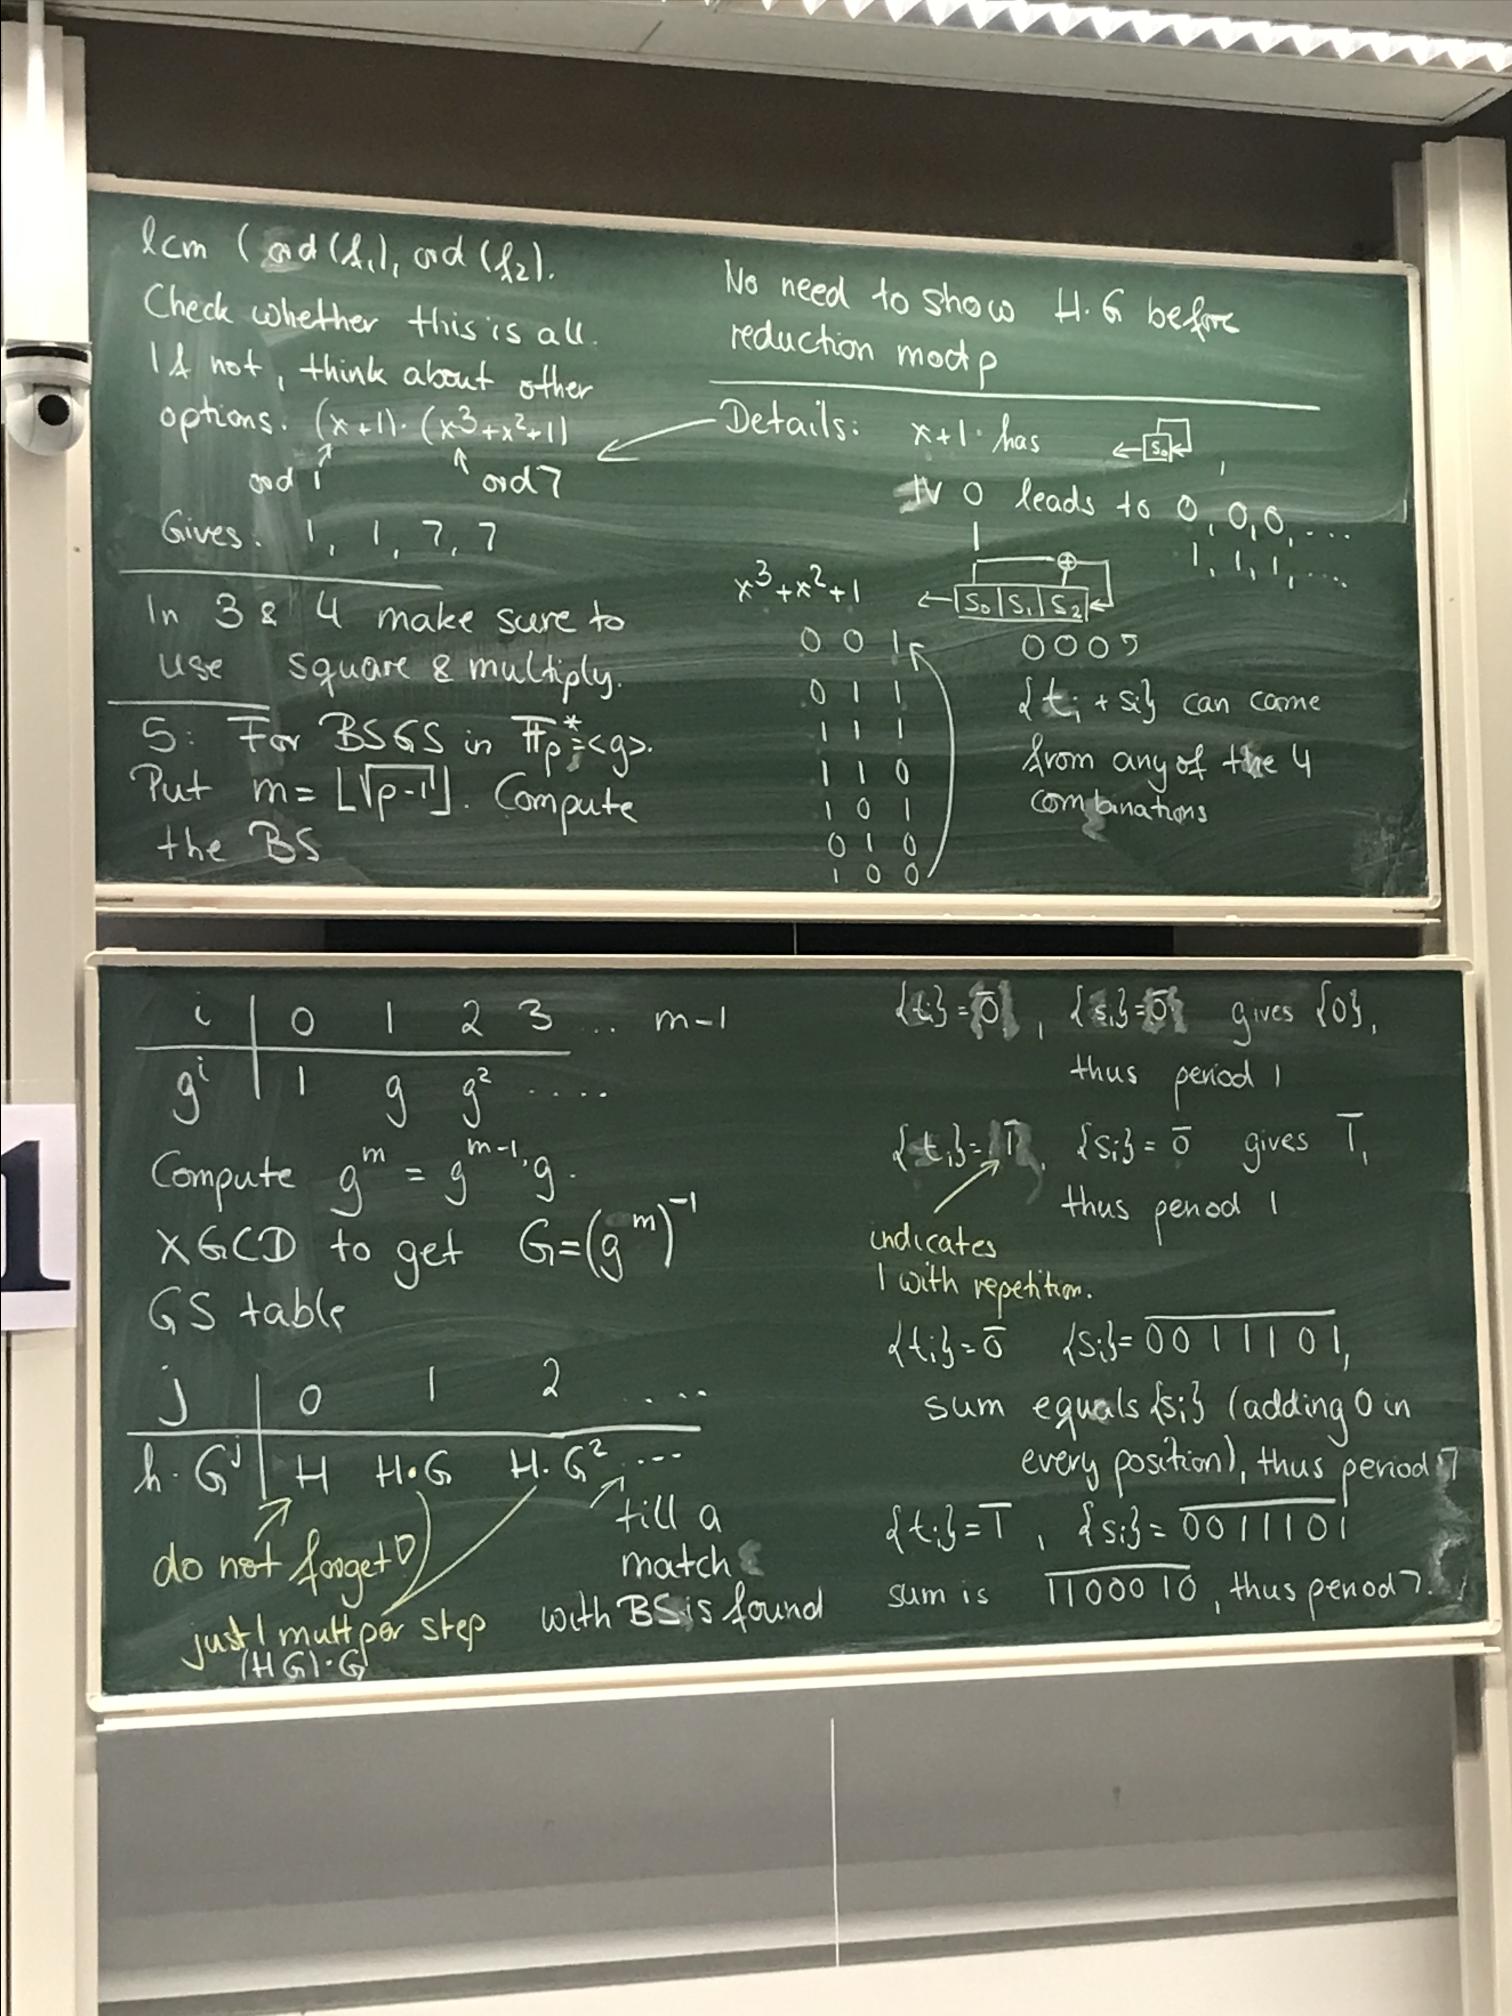 lcm (ord(f₁), ord(f₂).
Check whether this is all.
If not, think about other
options. (x+1)·(x³+x²+1)
ord 1 ord 7
Gives. 1, 1, 7, 7
In 3 & 4 make sure to
use square & multiply.
5: For BSGS in 𝔽p* = <g>.
Put m = ⌊√p-1⌋. Compute
the BS
No need to show H.G before
reduction mod p
Details: x+1 has ← S₀
IV 0 leads to 0, 0, 0, ...
1 1, 1, 1, ...
x³+x²+1 ← S₀|S₁|S₂ ⊕
0 0 1
0 1 1
1 1 1
1 1 0
1 0 1
0 1 0
1 0 0
0 0 0 5
{tᵢ + sᵢ} can come
from any of the 4
combinations
i | 0 1 2 3 ... m-1
gⁱ | 1 g g² ....
Compute gᵐ = gᵐ⁻¹·g.
XGCD to get G=(gᵐ)⁻¹
GS table
j | 0 1 2 ....
h·Gʲ | H H·G H·G² ...
do not forget!
till a
match
with BS is found
just 1 mult per step
(HG)·G
{tᵢ} = 0̅, {sᵢ} = 0̅ gives {0},
thus period 1
{tᵢ} = 1̅, {sᵢ} = 0̅ gives 1̅,
thus period 1
indicates
1 with repetition.
{tᵢ} = 0̅ {sᵢ} = 0̅0̅1̅1̅1̅0̅1̅,
sum equals {sᵢ} (adding 0 in
every position), thus period 7
{tᵢ} = 1̅, {sᵢ} = 0̅0̅1̅1̅1̅0̅1̅
sum is 1̅1̅0̅0̅0̅1̅0̅, thus period 7.
1